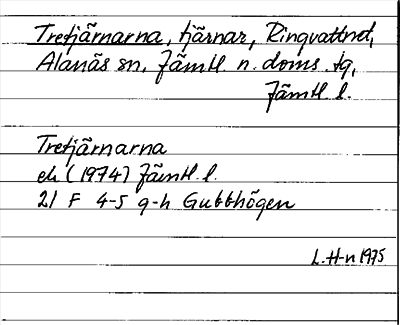 Tretjärnarna, tjärnar, Ringvattnet,
Alanäs sn, Jämtl. n. doms. tg,
Jämtl. l.
Tretjärnarna
ek (1974) Jämtl. l.
21 F 4-5 g-h Gubbhögen
L. H-n 1975